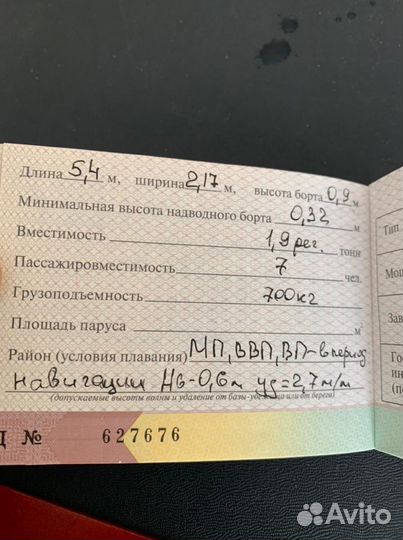 Длина 5,4 м, ширина 2,17 м, высота борта 0,9 м
Минимальная высота надводного борта 0,32 м
Вместимость 1,9 рег. тонн
Пассажировместимость 7 чел.
Грузоподъемность 700 кг
Площадь паруса м
Район (условия плавания) МП, ВВП, ВП - в период
навигации Нв-0,6м уд=2,7 м/м
(допускаемые высоты волны и удаление от базы-убежища или от берега)
№ 627676
Тип
Мощ
Зав
Го
ин
(по
Avito